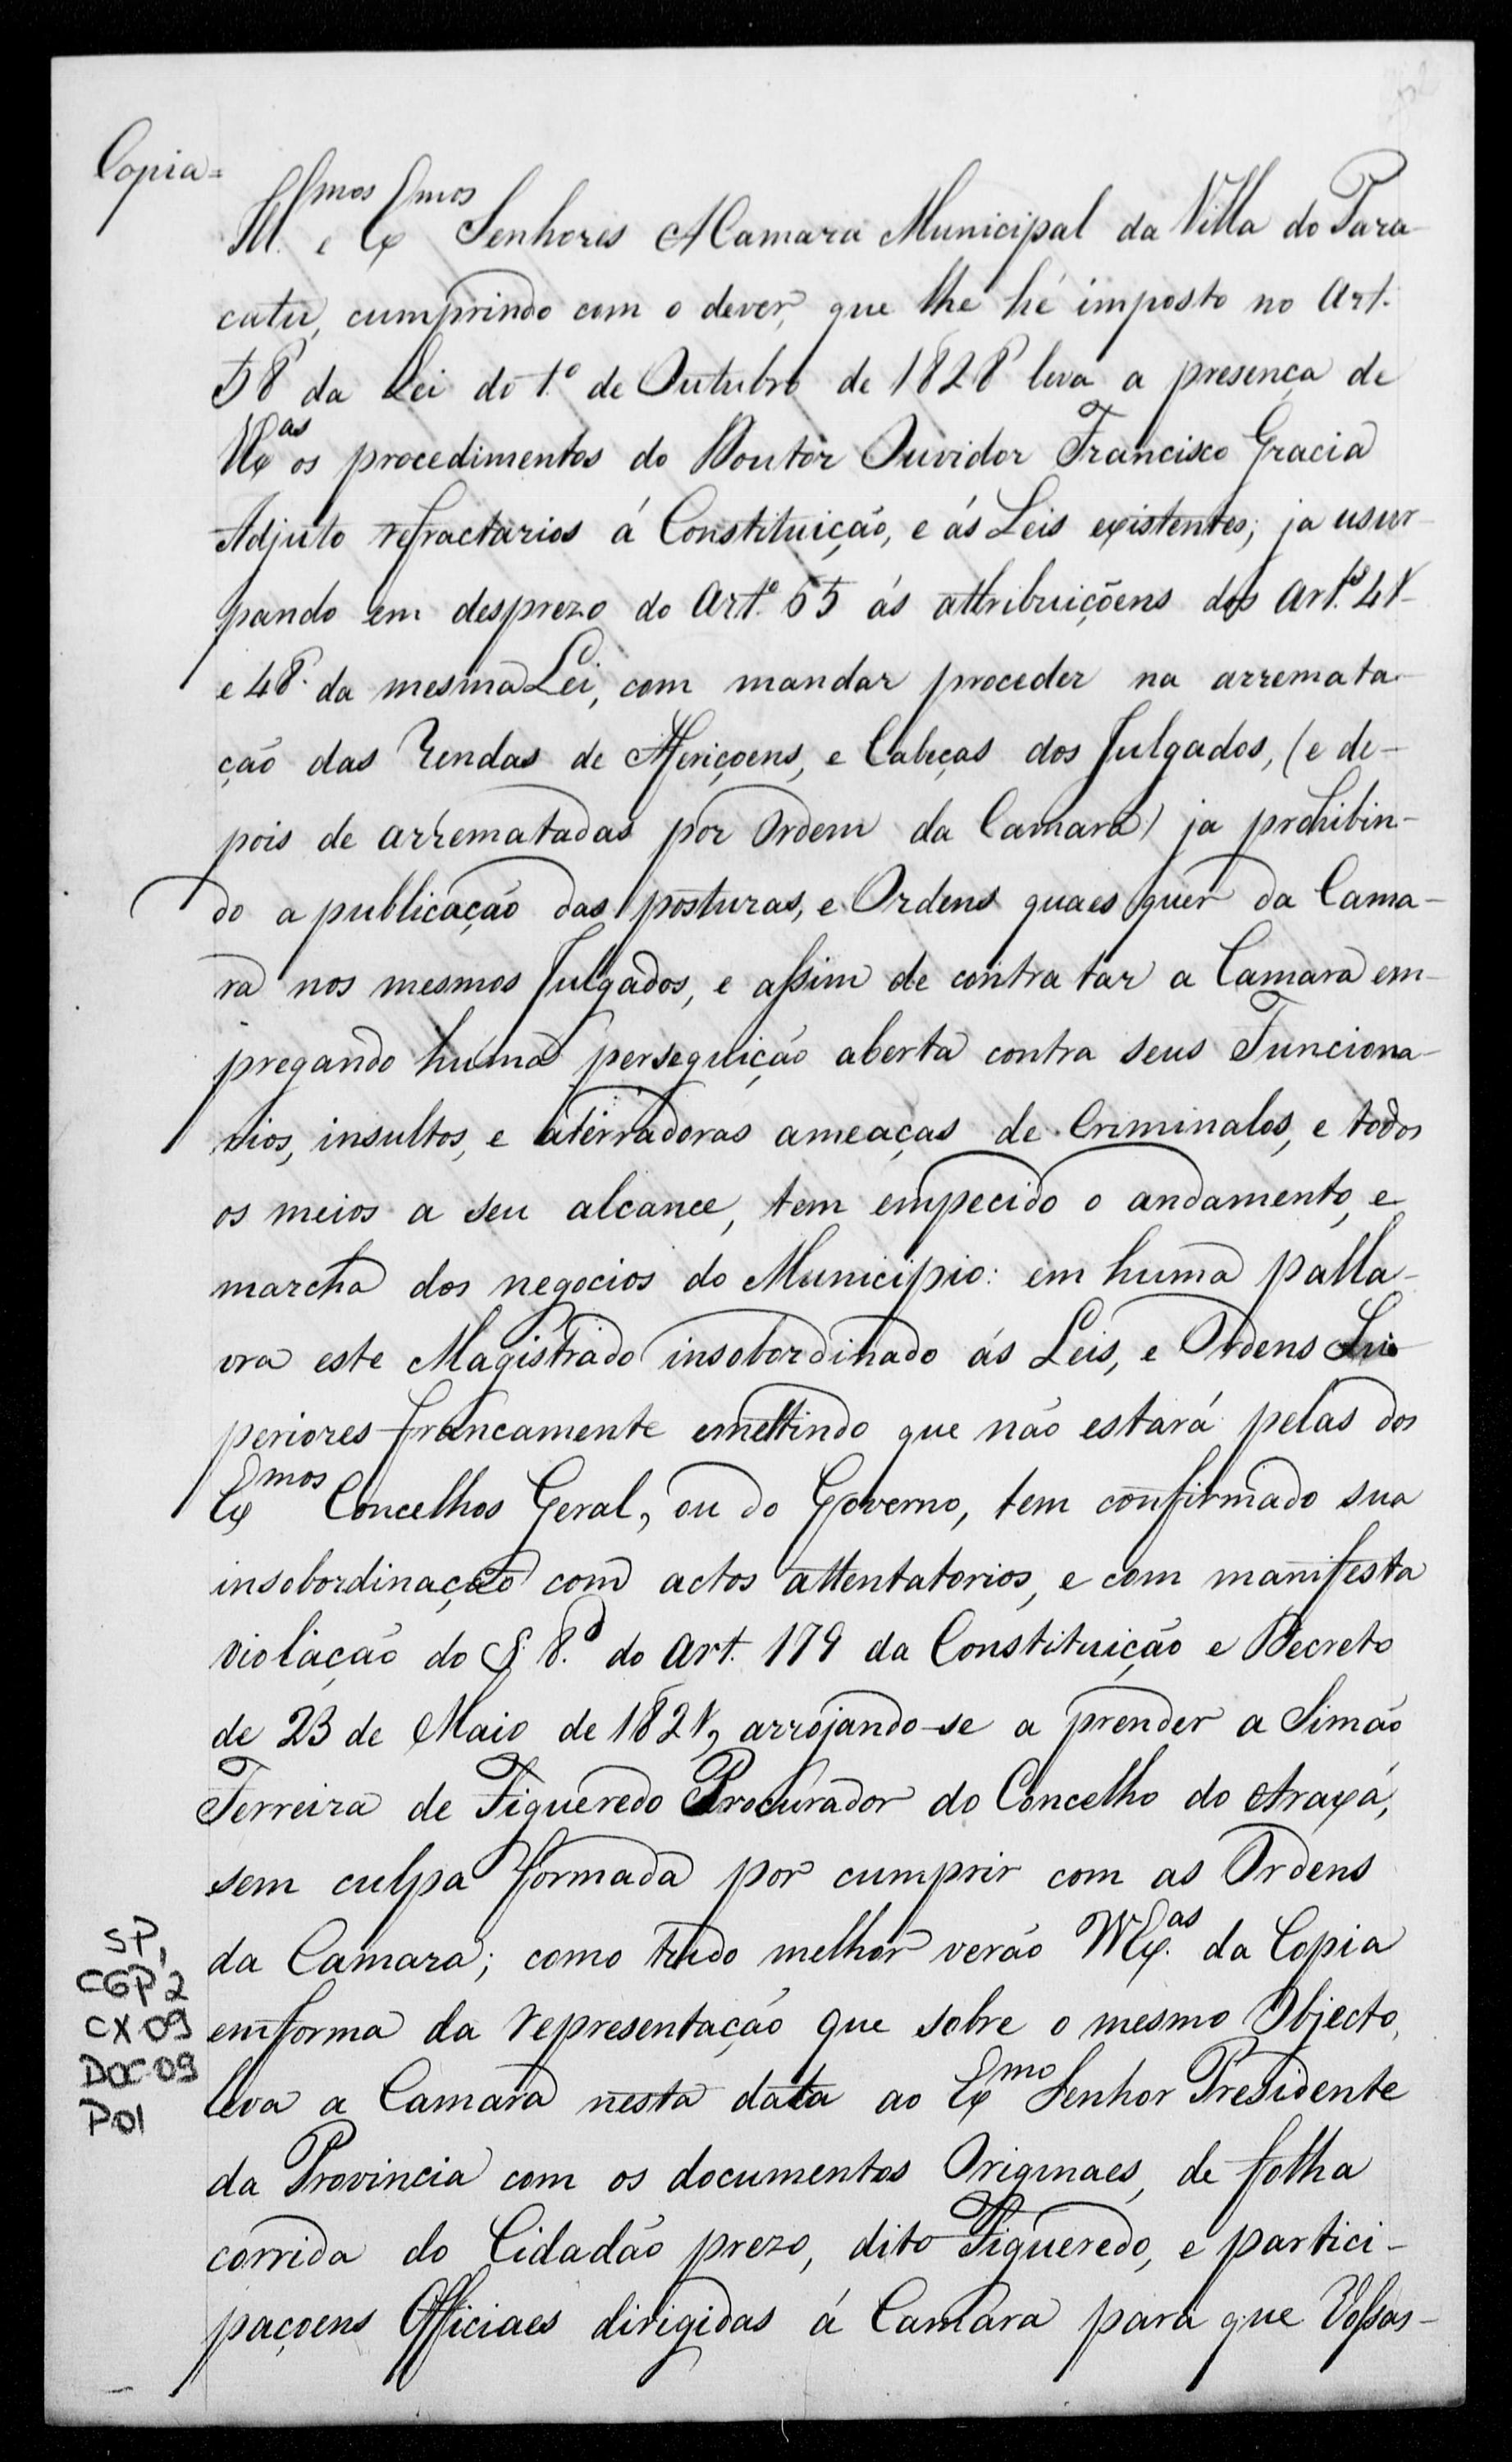 Copia=
Ill.mos e Ex.mos Senhores A Camara Municipal da Villa do Para-
catu, cumprindo com o dever, que lhe hé imposto no Art.
58 da Lei do 1.º de Outubro de 1828 leva a presença de
VVEx.as os procedimentos do Doutor Ouvidor Francisco Gracia
Adjuto refractarios á Constituição, e ás Leis existentes; ja usur-
pando em desprezo do Art.º 65 ás attribuiçõens dos Art.ºs 47
e 48. da mesma Lei, com mandar proceder na arremata-
ção das Rendas de Afericoens, e Cabeças dos Julgados, (e de-
pois de arrematadas por Ordem da Camara) ja prohibin-
do a publicação das posturas, e Ordens quaes quer da Cama-
ra nos mesmos Julgados, e assim de contra tar a Camara em-
pregando huma perseguição aberta contra seus Funciona-
rios, insultos, e aterradoras ameaças de Criminalos, e todos
os meios a seu alcance, tem empecido o andamento, e
marcha dos negocios do Municipio: em huma palla-
vra este Magistrado insobordinado ás Leis, e Ordens Su-
periores francamente emettindo que não estará pelas dos
Ex.mos Concelhos Geral, ou do Governo, tem confirmado sua
insobordinação com actos attentatorios, e com manifesta
violação do §. 8.º do Art. 179 da Constituição e Decreto
de 23 de Maio de 1821, arrojando-se a prender a Simão
Ferreira de Figueredo Procurador do Concelho do Araxá,
sem culpa formada por cumprir com as Ordens
da Camara; como tudo melhor verão VVEx.as da Copia
em forma da representação que sobre o mesmo Objecto,
leva a Camara nesta data ao Ex.mo Senhor Presidente
da Provincia com os documentos Originaes, de folha
corrida do Cidadão prezo, dito Figueredo, e partici-
paçoens Officiaes dirigidas á Camara para que Vossas-
SP,
CGP'2
CX 09
DOC 09
P01